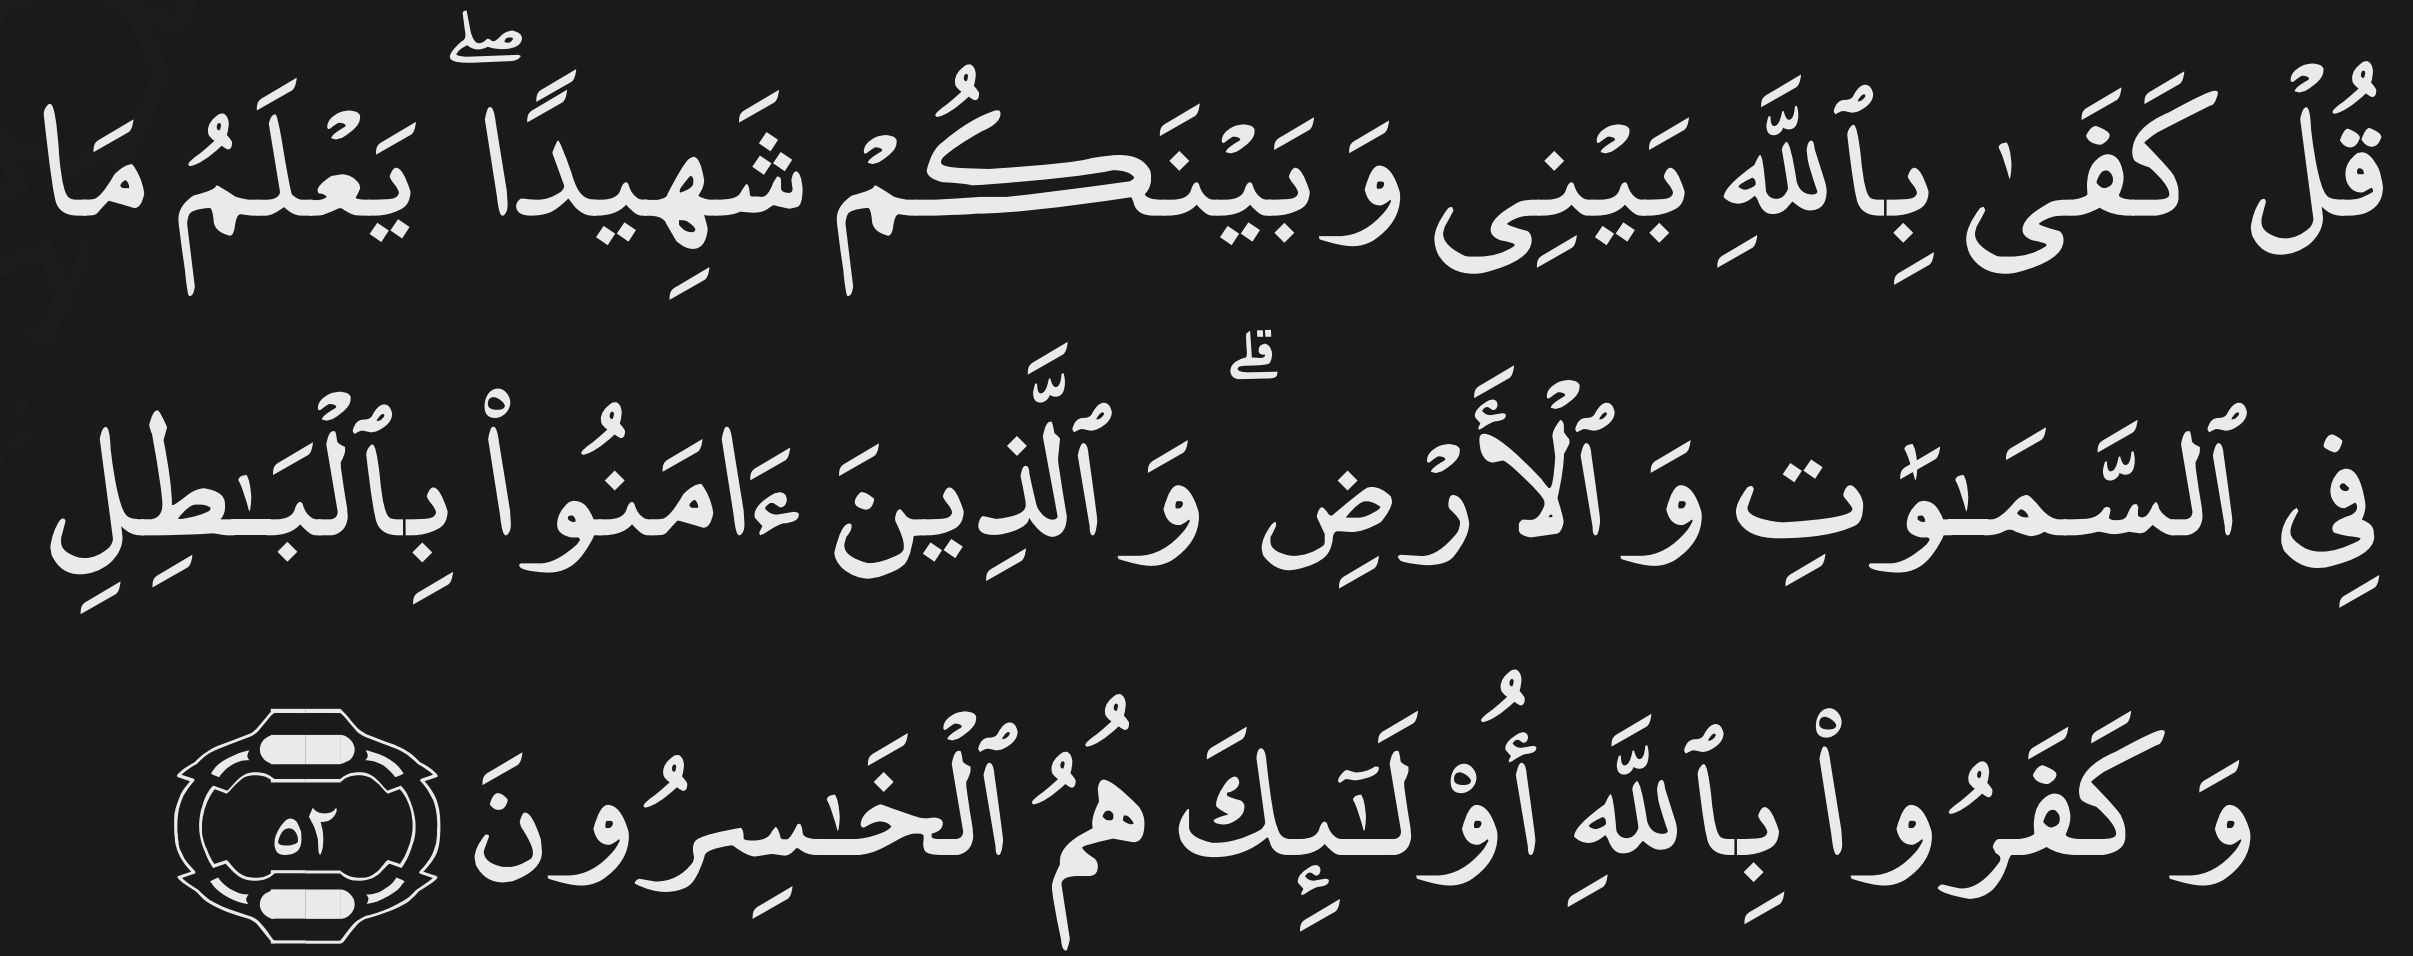 قُلْ كَفَىٰ بِٱللَّهِ بَيْنِى وَبَيْنَكُمْ شَهِيدًا ۖ يَعْلَمُ مَا
فِى ٱلسَّمَـٰوَٰتِ وَٱلْأَرْضِ ۗ وَٱلَّذِينَ ءَامَنُوا۟ بِٱلْبَـٰطِلِ
وَكَفَرُوا۟ بِٱللَّهِ أُو۟لَـٰٓئِكَ هُمُ ٱلْخَـٰسِرُونَ ٥٢